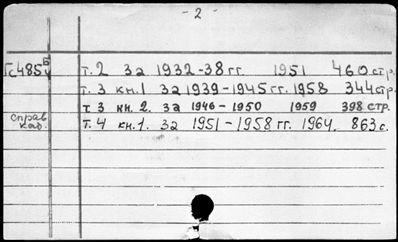 - 2 -
Гс485 Б/4 т. 2 за 1932-38 гг. 1951 460 стр.
т. 3 кн. 1 за 1939-1945 гг. 1958 344 стр.
т. 3 кн. 2. за 1946-1950 1959 398 стр.
справ
каб. т. 4 кн. 1. за 1951-1958 гг. 1964. 863 с.